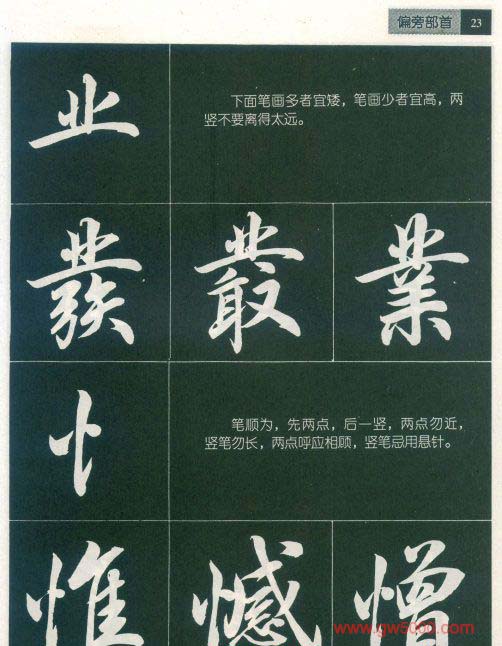 偏旁部首 23
业
下面笔画多者宜矮，笔画少者宜高，两
竖不要离得太远。
叢 業
忄
笔顺为，先两点，后一竖，两点勿近，
竖笔勿长，两点呼应相顾，竖笔忌用悬针。
惟 憾 憎